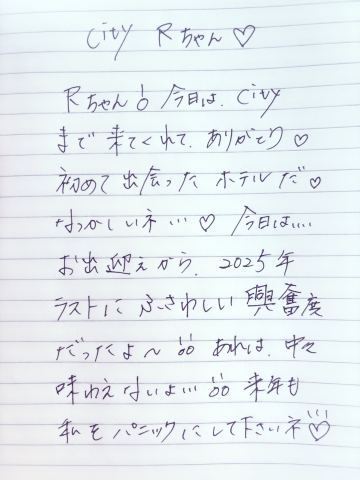 City Rちゃん♡
Rちゃん！今日は、City
まで来てくれて、ありがとう♡
初めて出会ったホテルだ♡
なつかしいネ…♡ 今日は….
お出迎えから、2025年
ラストにふさわしい興奮度
だったよ〜!! あれは、中々
味わえないよ…!! 来年も
私をパニックにして下さいネ♡